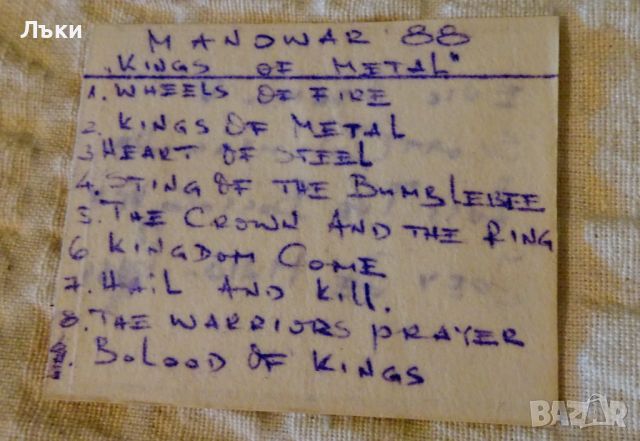 Лъки
MANOWAR '88
"KINGS OF METAL"
1. WHEELS OF FIRE
2. KINGS OF METAL
3 HEART OF STEEL
4. STING OF THE BUMBLEBEE
5. THE CROWN AND THE RING
6 KINGDOM COME
7. HAIL AND KILL.
8. THE WARRIORS PRAYER
. BOLOOD OF KINGS
BAZAR